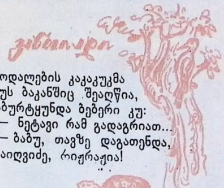 განთიადი
ოდალების კაკაკუკმა
უს ბაკანშიც შეაღწია,
ბურტყუნდა ბებერი კუ:
— ნეტავი რამ გადაგრიათ...
— ბაბუ, თავზე დაგათენდა,
აიღვიძე, რიჟრაჟია!